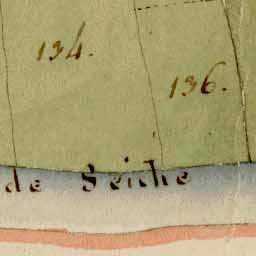 134.
136.
de Seiche